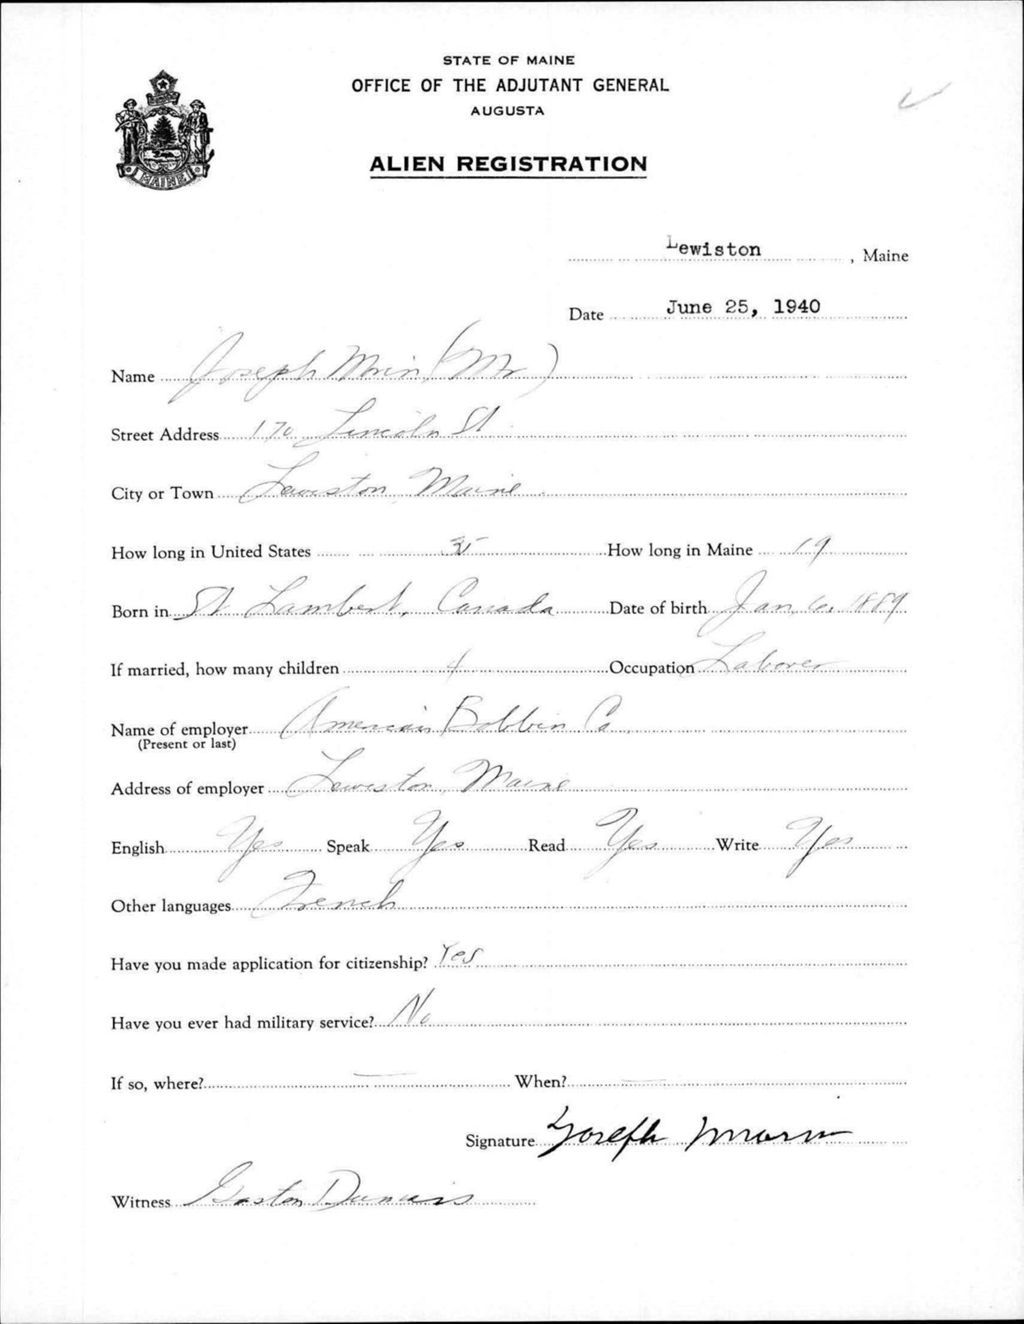 STATE OF MAINE
OFFICE OF THE ADJUTANT GENERAL
AUGUSTA
MAINE
ALIEN REGISTRATION
Lewiston, Maine
Date June 25, 1940
Name Joseph Morin (Mr)
Street Address 170 Lincoln St
City or Town Lewiston, Maine.
How long in United States How long in Maine 19
Born in St Lambert, Canada Date of birth Jan. 6, 1889
If married, how many children 4 Occupation Laborer
Name of employer American Bobbin Co
(Present or last)
Address of employer Lewiston, Maine
English Yes Speak Yes Read Yes Write Yes
Other languages French
Have you made application for citizenship? Yes
Have you ever had military service? No
If so, where? — When? —
Signature Joseph Morin
Witness Gaston